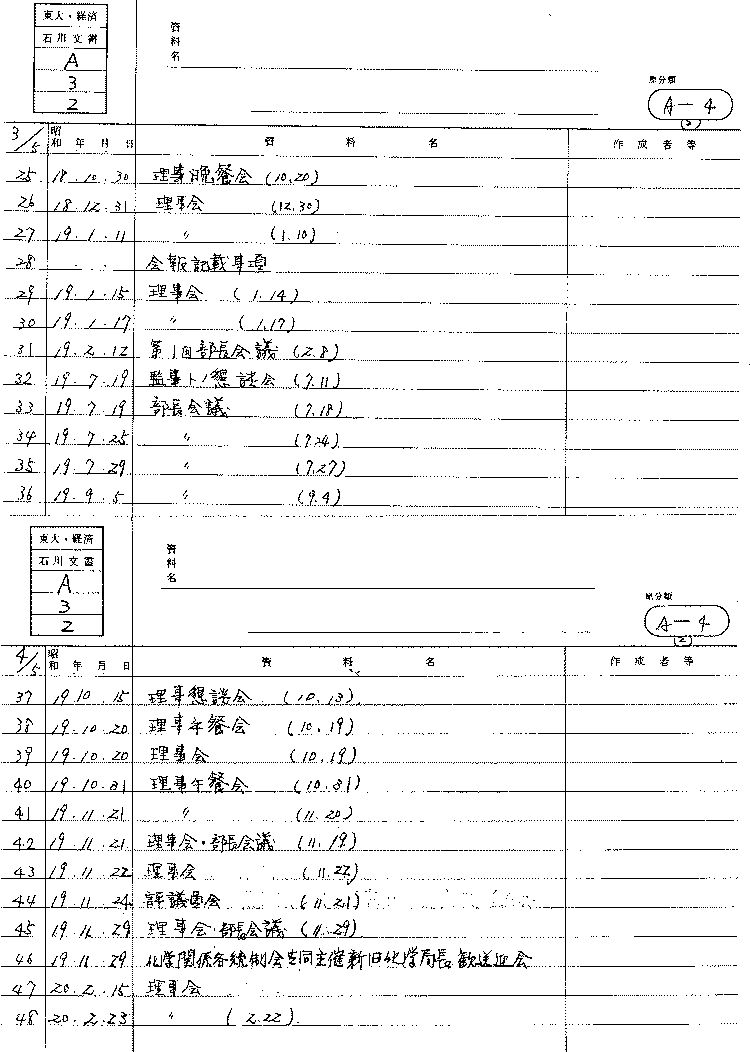 東大・経済
石川文書
A
3
2
資料名
原分類
A-4
(2)
3/5 昭和 年 月 日 資 料 名 作 成 者 等
25 18.10.30 理事晩餐会 (10.20)
26 18.12.31 理事会 (12.30)
27 19.1.11 〃 (1.10)
28 . . 会報記載事項
29 19.1.15 理事会 (1.14)
30 19.1.17 〃 (1.17)
31 19.2.12 第1回部長会議 (2.8)
32 19.7.19 監事トノ懇談会 (7.11)
33 19.7.19 部長会議 (7.18)
34 19.7.25 〃 (7.24)
35 19.7.29 〃 (7.27)
36 19.9.5 〃 (9.4)
東大・経済
石川文書
A
3
2
資料名
原分類
A-4
(2)
4/5 昭和 年 月 日 資 料 名 作 成 者 等
37 19.10.15 理事懇談会 (10.13)
38 19.10.20 理事午餐会 (10.19)
39 19.10.20 理事会 (10.19)
40 19.10.31 理事午餐会 (10.31)
41 19.11.21 〃 (11.20)
42 19.11.21 理事会・部長会議 (11.19)
43 19.11.22 理事会 (11.22)
44 19.11.24 評議員会 (11.21)
45 19.11.29 理事会・部長会議 (11.29)
46 19.11.29 化学関係各統制会共同主催新旧化学局長歓送迎会
47 20.2.15 理事会
48 20.2.23 〃 (2.22)